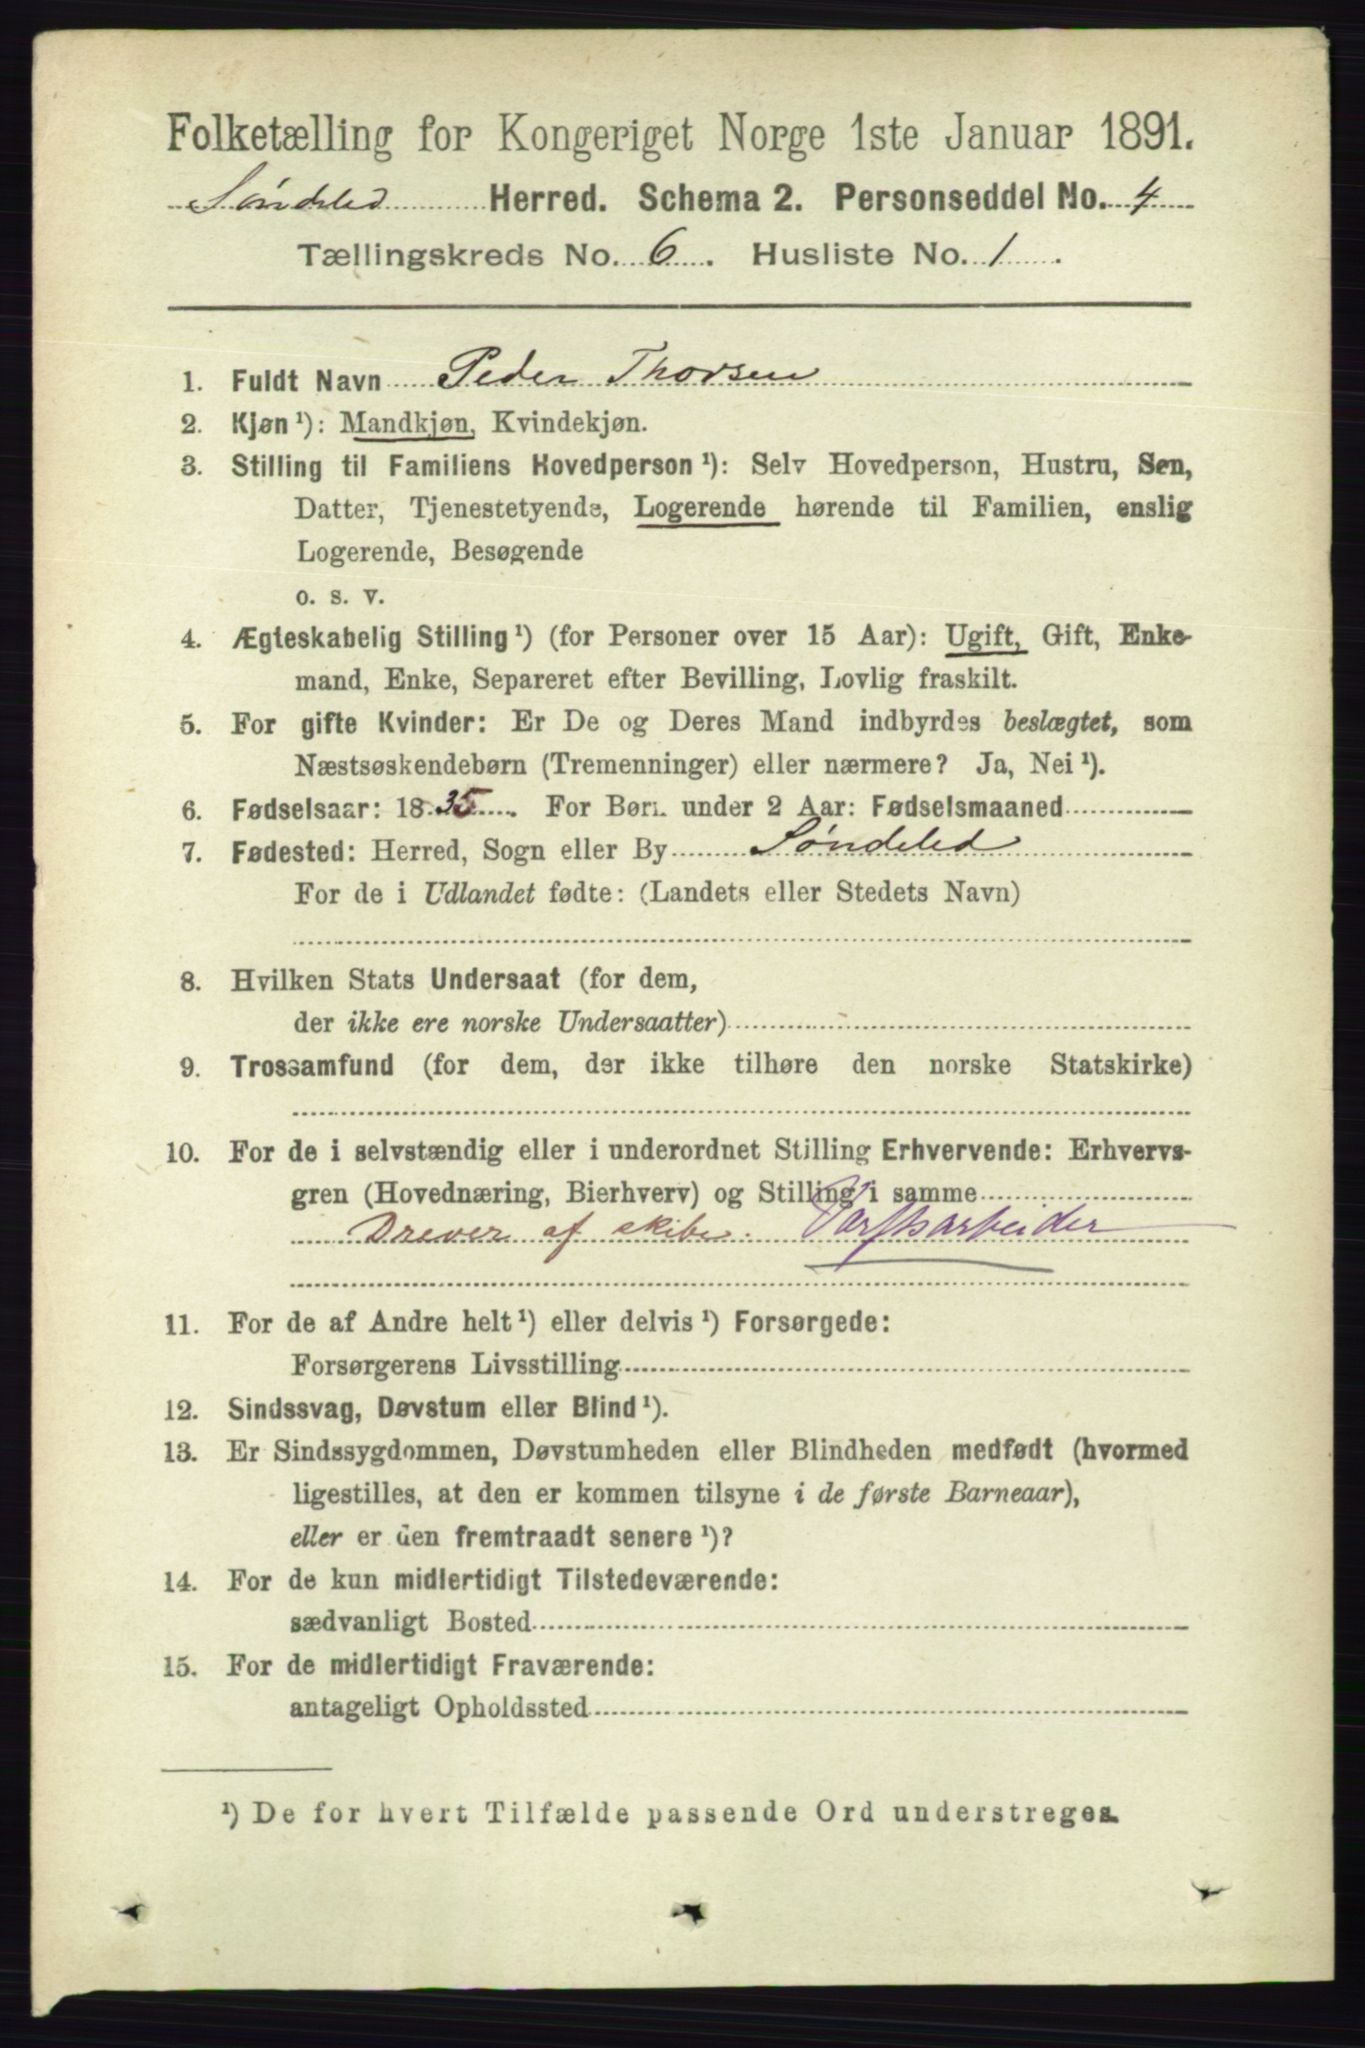 Folketælling for Kongeriget Norge 1ste Januar 1891.
Søndeled Herred. Schema 2. Personseddel No. 4
Tællingskreds No. 6. Husliste No. 1.
1. Fuldt Navn Peder Thorsen
2. Kjøn¹): Mandkjøn, Kvindekjøn.
3. Stilling til Familiens Hovedperson¹): Selv Hovedperson, Hustru, Søn,
Datter, Tjenestetyende, Logerende hørende til Familien, enslig
Logerende, Besøgende
o. s. v.
4. Ægteskabelig Stilling¹) (for Personer over 15 Aar): Ugift, Gift, Enke-
mand, Enke, Separeret efter Bevilling, Lovlig fraskilt.
5. For gifte Kvinder: Er De og Deres Mand indbyrdes beslægtet, som
Næstsøskendebørn (Tremenninger) eller nærmere? Ja, Nei¹).
6. Fødselsaar: 1835. For Børn under 2 Aar: Fødselsmaaned
7. Fødested: Herred, Sogn eller By Søndeled
For de i Udlandet fødte: (Landets eller Stedets Navn)
8. Hvilken Stats Undersaat (for dem,
der ikke ere norske Undersaatter)
9. Trossamfund (for dem, der ikke tilhøre den norske Statskirke)
10. For de i selvstændig eller i underordnet Stilling Erhvervende: Erhvervs-
gren (Hovednæring, Bierhverv) og Stilling i samme
Drever af skibe. Værftsarbeider
11. For de af Andre helt¹) eller delvis¹) Forsørgede:
Forsørgerens Livsstilling
12. Sindssvag, Døvstum eller Blind¹).
13. Er Sindssygdommen, Døvstumheden eller Blindheden medfødt (hvormed
ligestilles, at den er kommen tilsyne i de første Barneaar),
eller er den fremtraadt senere¹)?
14. For de kun midlertidigt Tilstedeværende:
sædvanligt Bosted
15. For de midlertidigt Fraværende:
antageligt Opholdssted
¹) De for hvert Tilfælde passende Ord understreges.